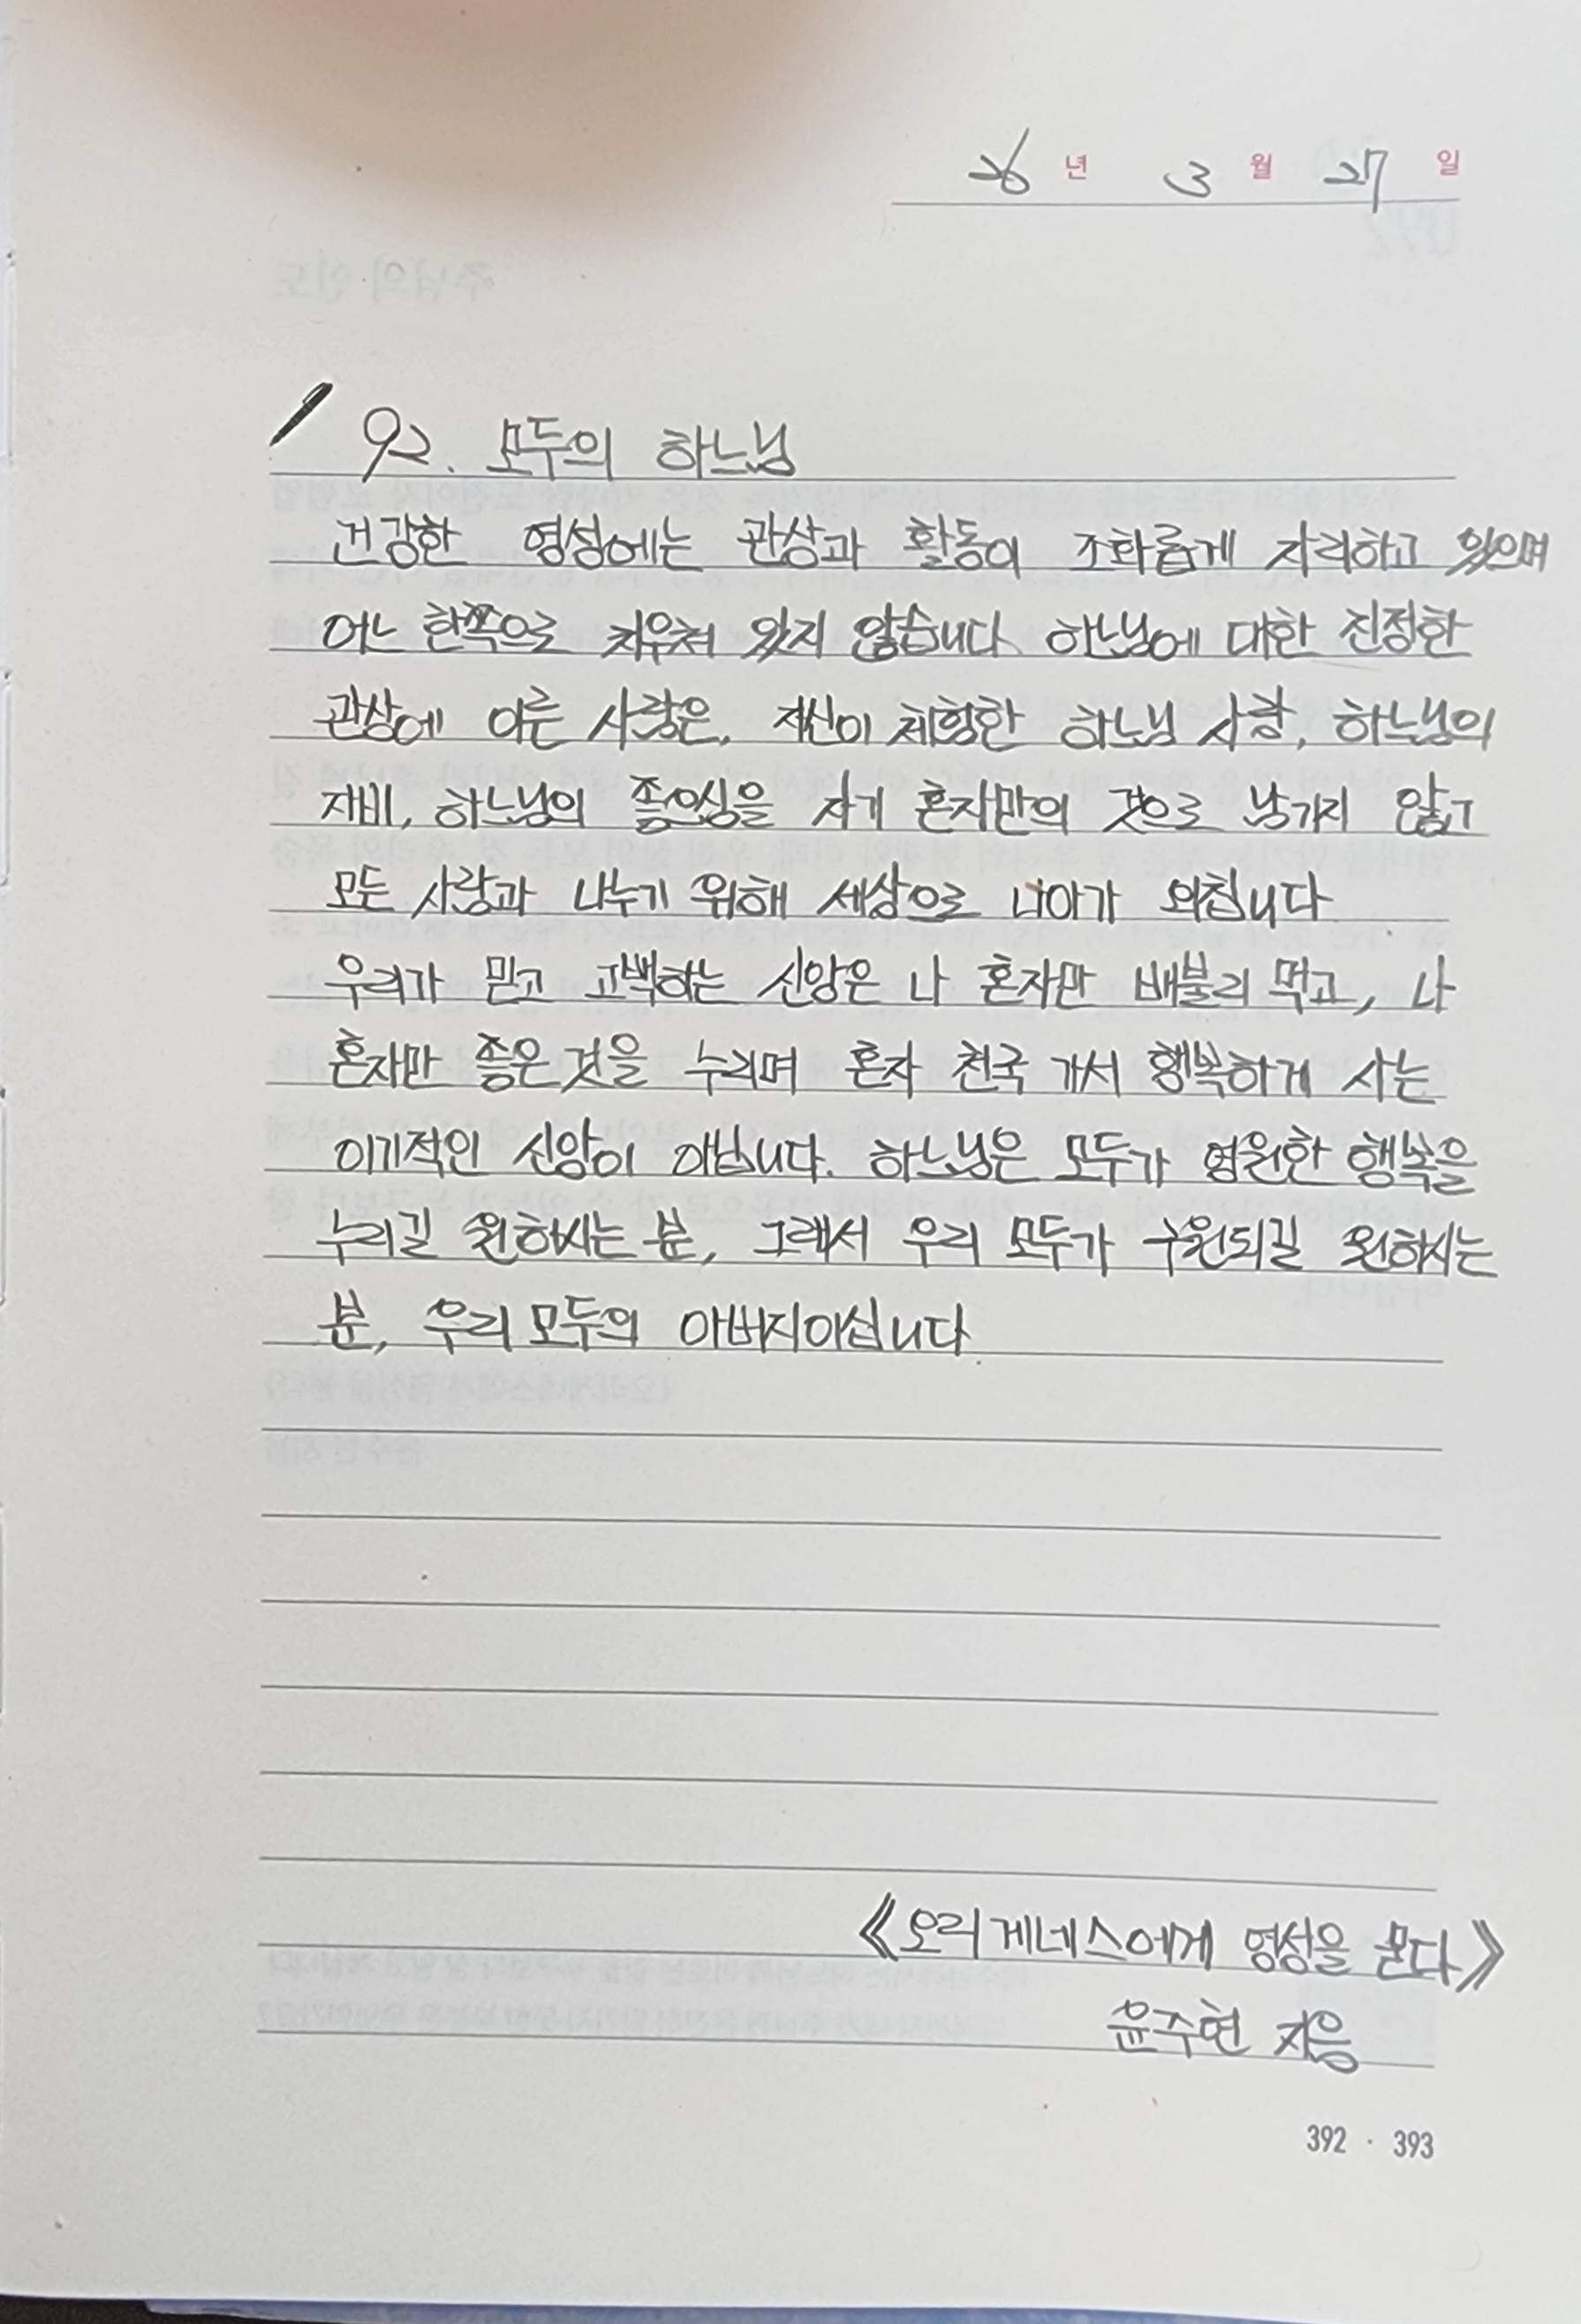 26년 3월 27일
92. 모두의 하느님
건강한 영성에는 관상과 활동이 조화롭게 자리하고 있으며
어느 한쪽으로 치우쳐 있지 않습니다. 하느님에 대한 진정한
관상에 이른 사람은, 자신이 체험한 하느님 사랑, 하느님의
자비, 하느님의 좋으심을 자기 혼자만의 것으로 남기지 않고
모든 사람과 나누기 위해 세상으로 나아가 외칩니다
우리가 믿고 고백하는 신앙은 나 혼자만 배불리 먹고, 나
혼자만 좋은 것을 누리며 혼자 천국 가서 행복하게 사는
이기적인 신앙이 아닙니다. 하느님은 모두가 영원한 행복을
누리길 원하시는 분, 그래서 우리 모두가 구원되길 원하시는
분, 우리 모두의 아버지이십니다.
《오리게네스에게 영성을 묻다》
윤주현 지음
392 · 393